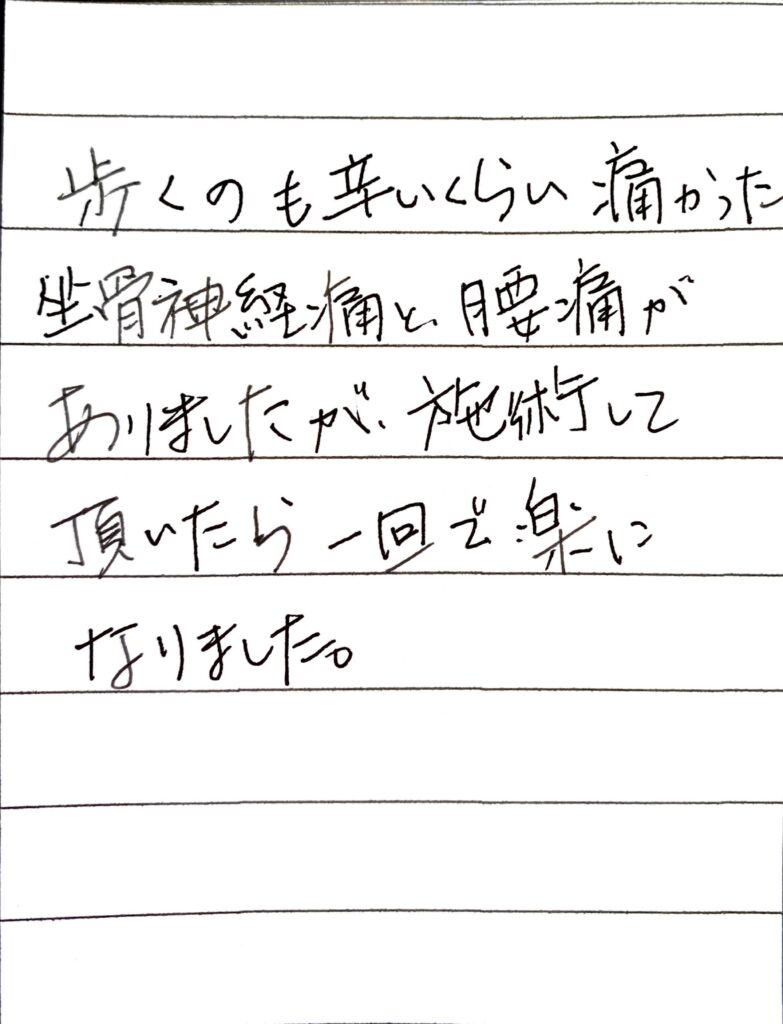 歩くのも辛いくらい痛かった
坐骨神経痛と、腰痛が
ありましたが、施術して
頂いたら一回で楽に
なりました。